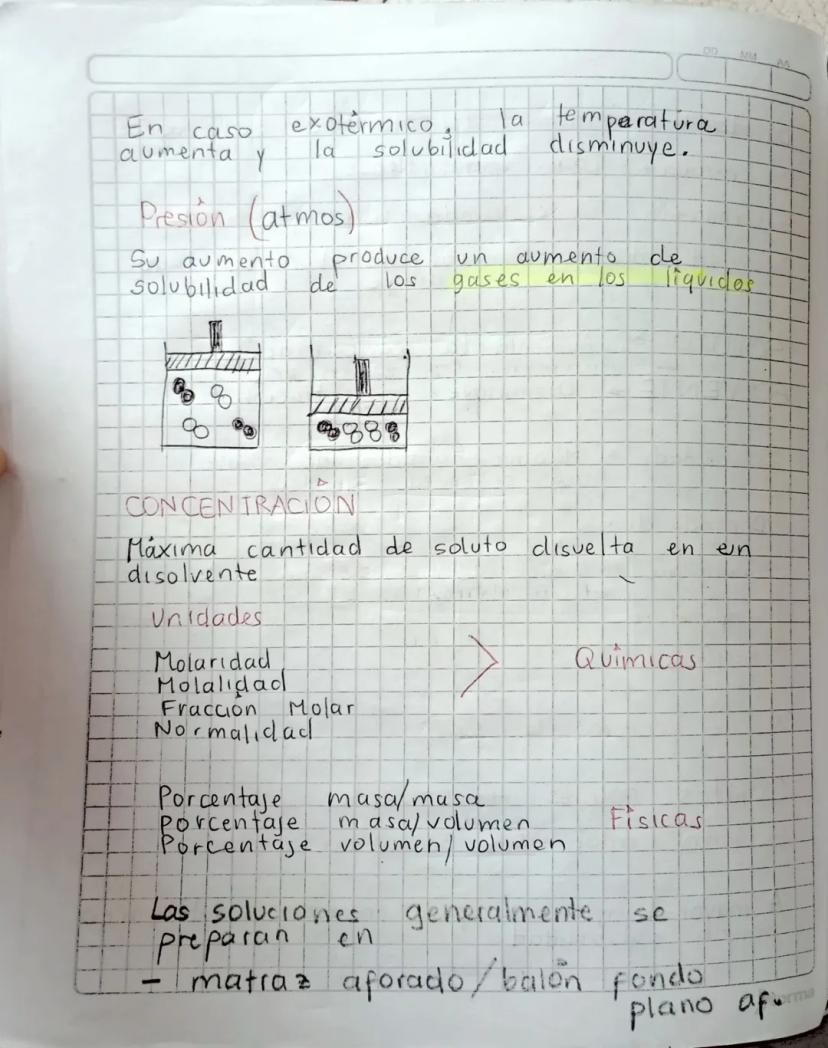 DD MM AA
En caso exotérmico, la temperatura
aumenta y la solubilidad disminuye.
Presión (atmos)
Su aumento produce un aumento de
solubilidad de los gases en los líquidos
CONCENTRACIÓN
Máxima cantidad de soluto disuelta en en
disolvente
Unidades
Molaridad
Molalidad
Fracción Molar
Normalidad
Químicas
Porcentaje masa/masa
Porcentaje masa/volumen
Porcentaje volumen/volumen
Físicas
Las soluciones generalmente se
preparan en
- matraz aforado/balón fondo
plano af.